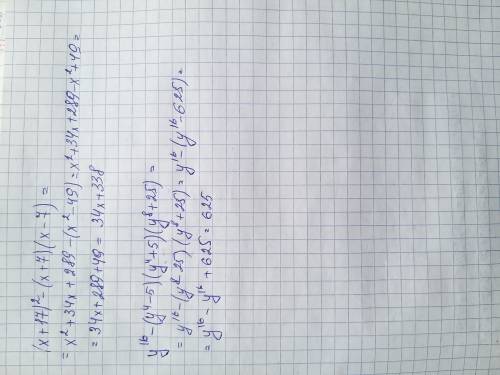 (x+17)²-(x+7)(x-7)=
=x²+34x+289-(x²-49)=x²+34x+289-x²+49=
=34x+289+49=34x+338
y¹⁶-(y⁴-5)(y⁴+5)(y⁸+25)=
=y¹⁶-(y⁸-25)(y⁸+25)=y¹⁶-(y¹⁶-625)=
=y¹⁶-y¹⁶+625=625